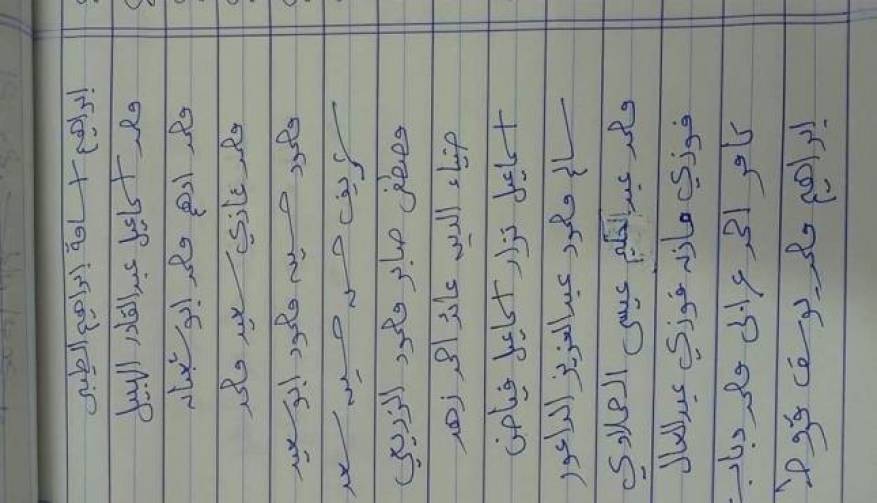 ابراهيم اسامة ابراهيم الطيبي
محمد اسماعيل عبدالقادر النبيل
محمد ادهم محمد ابو شعبان
محمد غازي سعيد محمد
محمود حسين محمود ابو سعيد
شريف حسن حسين سعيد
مصطفى صابر محمود الزريعي
ضياء الدين عائد احمد زهد
اسماعيل نزار اسماعيل فياض
سالم محمود عبدالعزيز الداعور
محمد عبدالحليم عيسى العملاوي
فوزي مازن فوزي عبدالعال
كامل اكرم محمد دباب
ابراهيم محمد يوسف